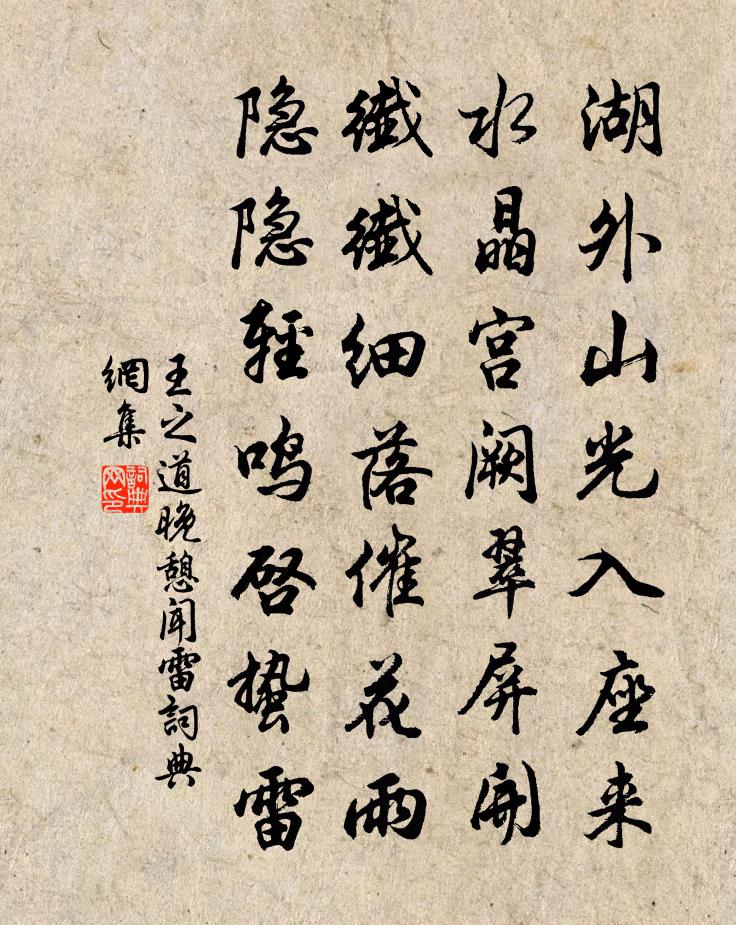 湖外山光入座来
水晶宫阙翠屏开
纖纖细落催花雨
隐隐輕鸣啓蛰雷
王之道晚憩闻雷詞典
網集
詞典
网印